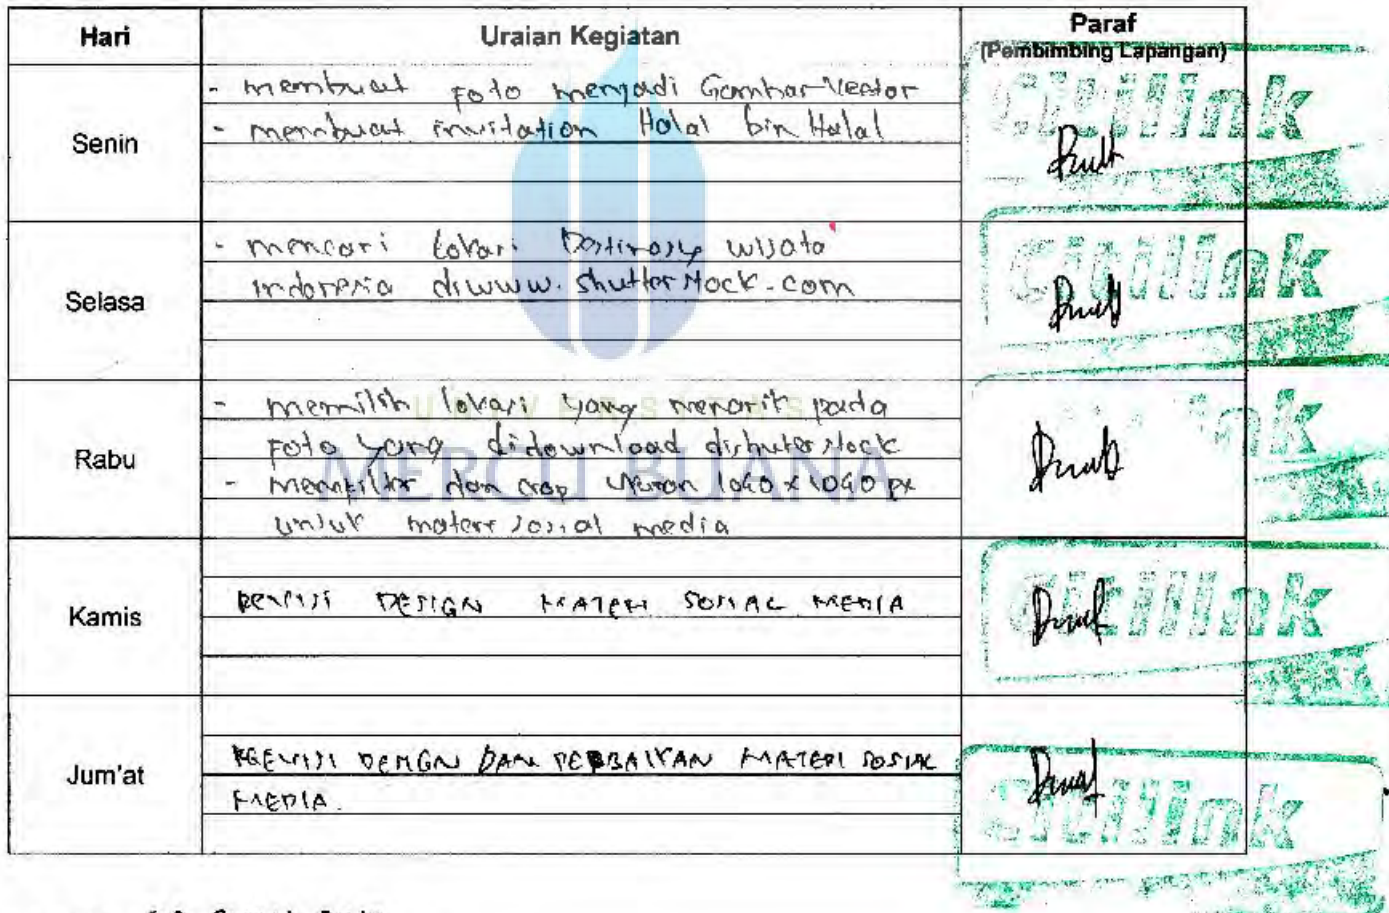 Hari Uraian Kegiatan Paraf
(Pembimbing Lapangan)
Senin
- membuat Foto menjadi Gambar Vector
- membuat invitation Halal bin Halal
Citilink
Selasa
- mencari lokasi Destinasi wisata
indonesia diwww.shutterstock.com
Citilink
Rabu
- memilih lokasi yang menarik pada
Foto yang didownload dishuterstock
- memfilter dan crop ukuran 1040 x 1040 px
untuk materi sosial media
UNIVERSITAS
MERCU BUANA
Kamis
REVISI DESIGN MATERI SOSIAL MEDIA
Citilink
Jum'at
REVISI DESIGN DAN PERBAIKAN MATERI SOSIAL
MEDIA.
Citilink